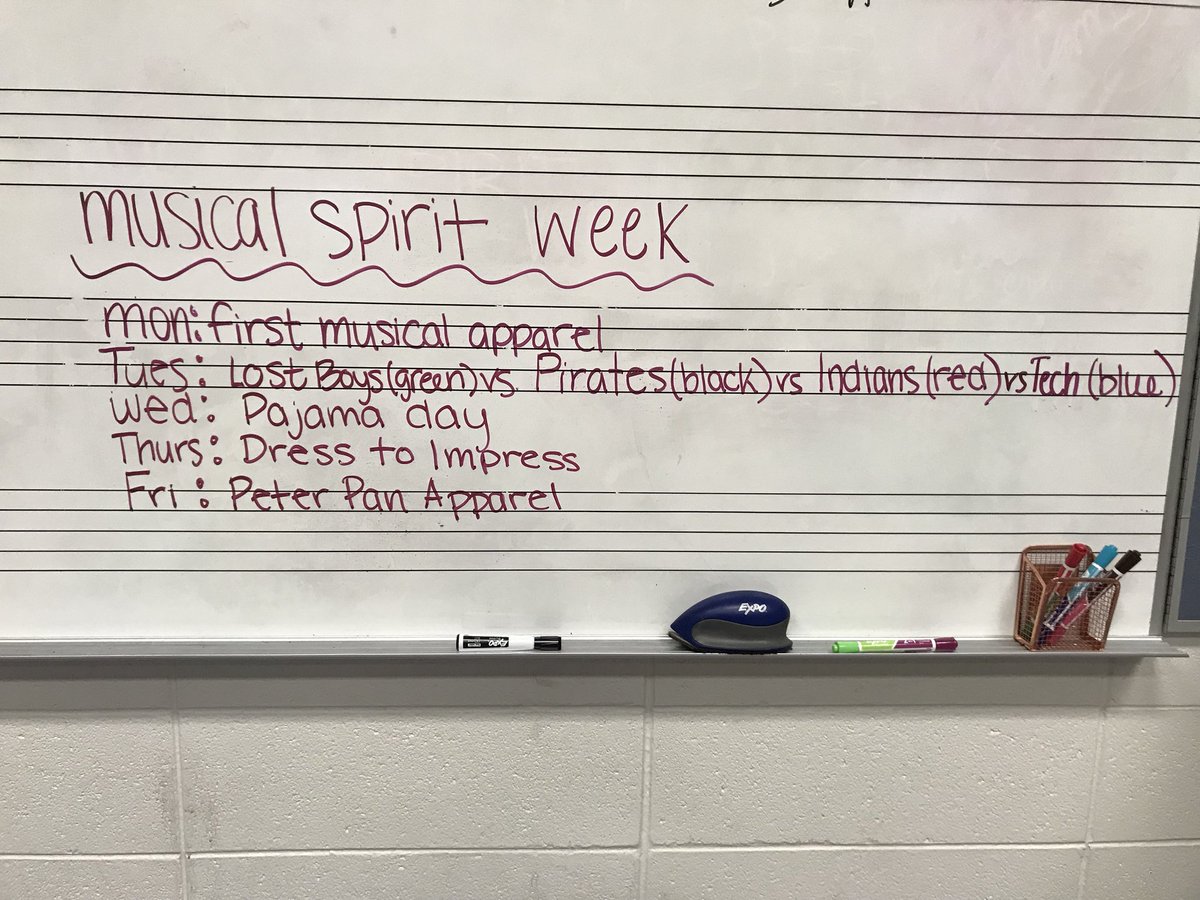 musical spirit week
mon: first musical apparel
Tues: Lost Boys(green)vs. Pirates(black)vs Indians(red)vsTech(blue)
Wed: Pajama day
Thurs: Dress to Impress
Fri: Peter Pan Apparel
EXPO
EXPO